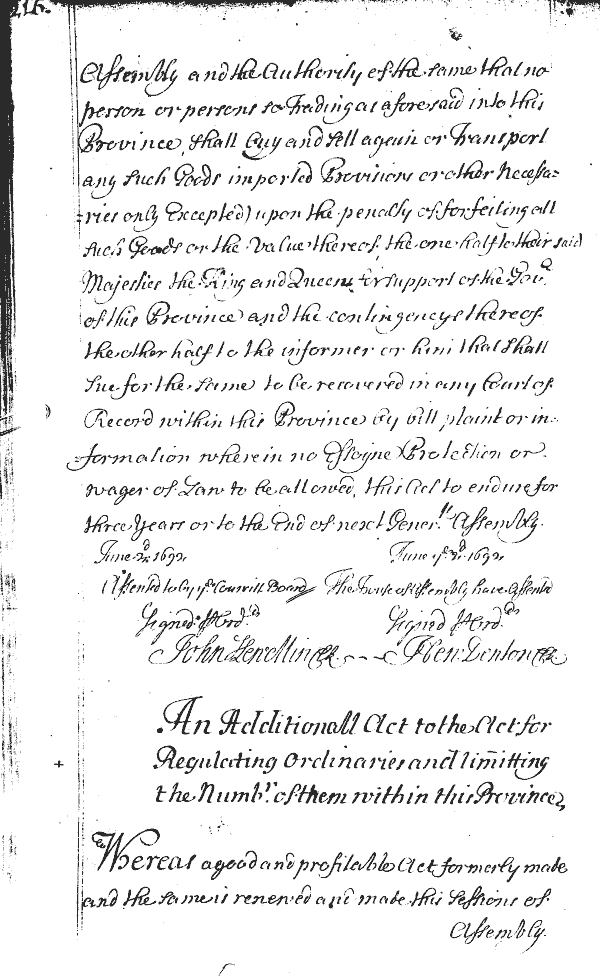 216.
Assembly and the Authority of the same that no
person or persons so Trading as aforesaid into this
Province, shall buy and sell again or Transport
any such Goods imported (Provisions or other Necessa=
=ries only Excepted) upon the penalty of forfeiting all
such Goods or the Value thereof, the one half to their said
Majesties the King and Queen for support of the Govr.
of this Province and the contingencys thereof
the other half to the informer or him that shall
sue for the same to be recovered in any Court of
Record within this Province by bill plaint or in-
=formation wherein no Essoyne Protection or
wager of Law to be allowed, this Act to endure for
three Years or to the End of next Generll. Assembly.
June 2d. 1692 June ye 3d. 1692
Assented to by ye Councill Board The house of Assembly have Assented
Signed p Ordr. Signed p Ordr.
John Llewellin Clk Hen: Denton Clk
An Additionall Act to the Act for
+ Regulating Ordinaries and limitting
the Numbr. of them within this Province
Whereas a good and profitable Act formerly made
and the same is renewed and made this Sessions of
Assembly.